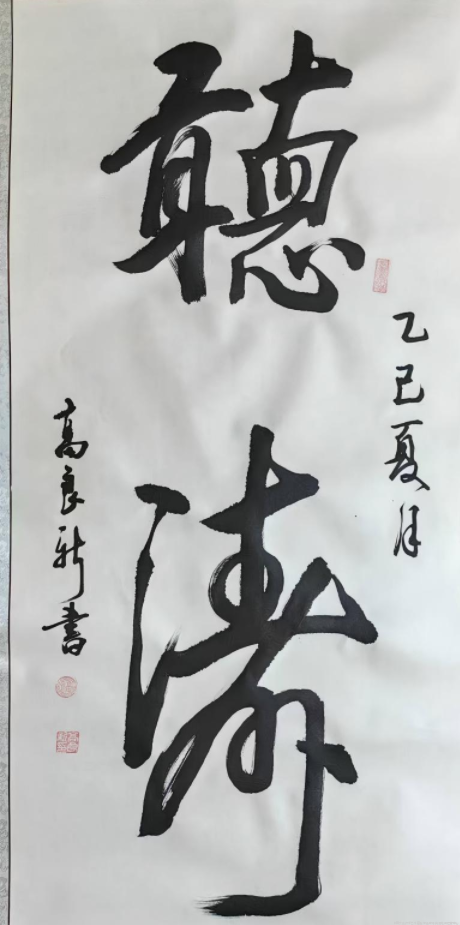 聽濤
乙巳夏月
高良新書